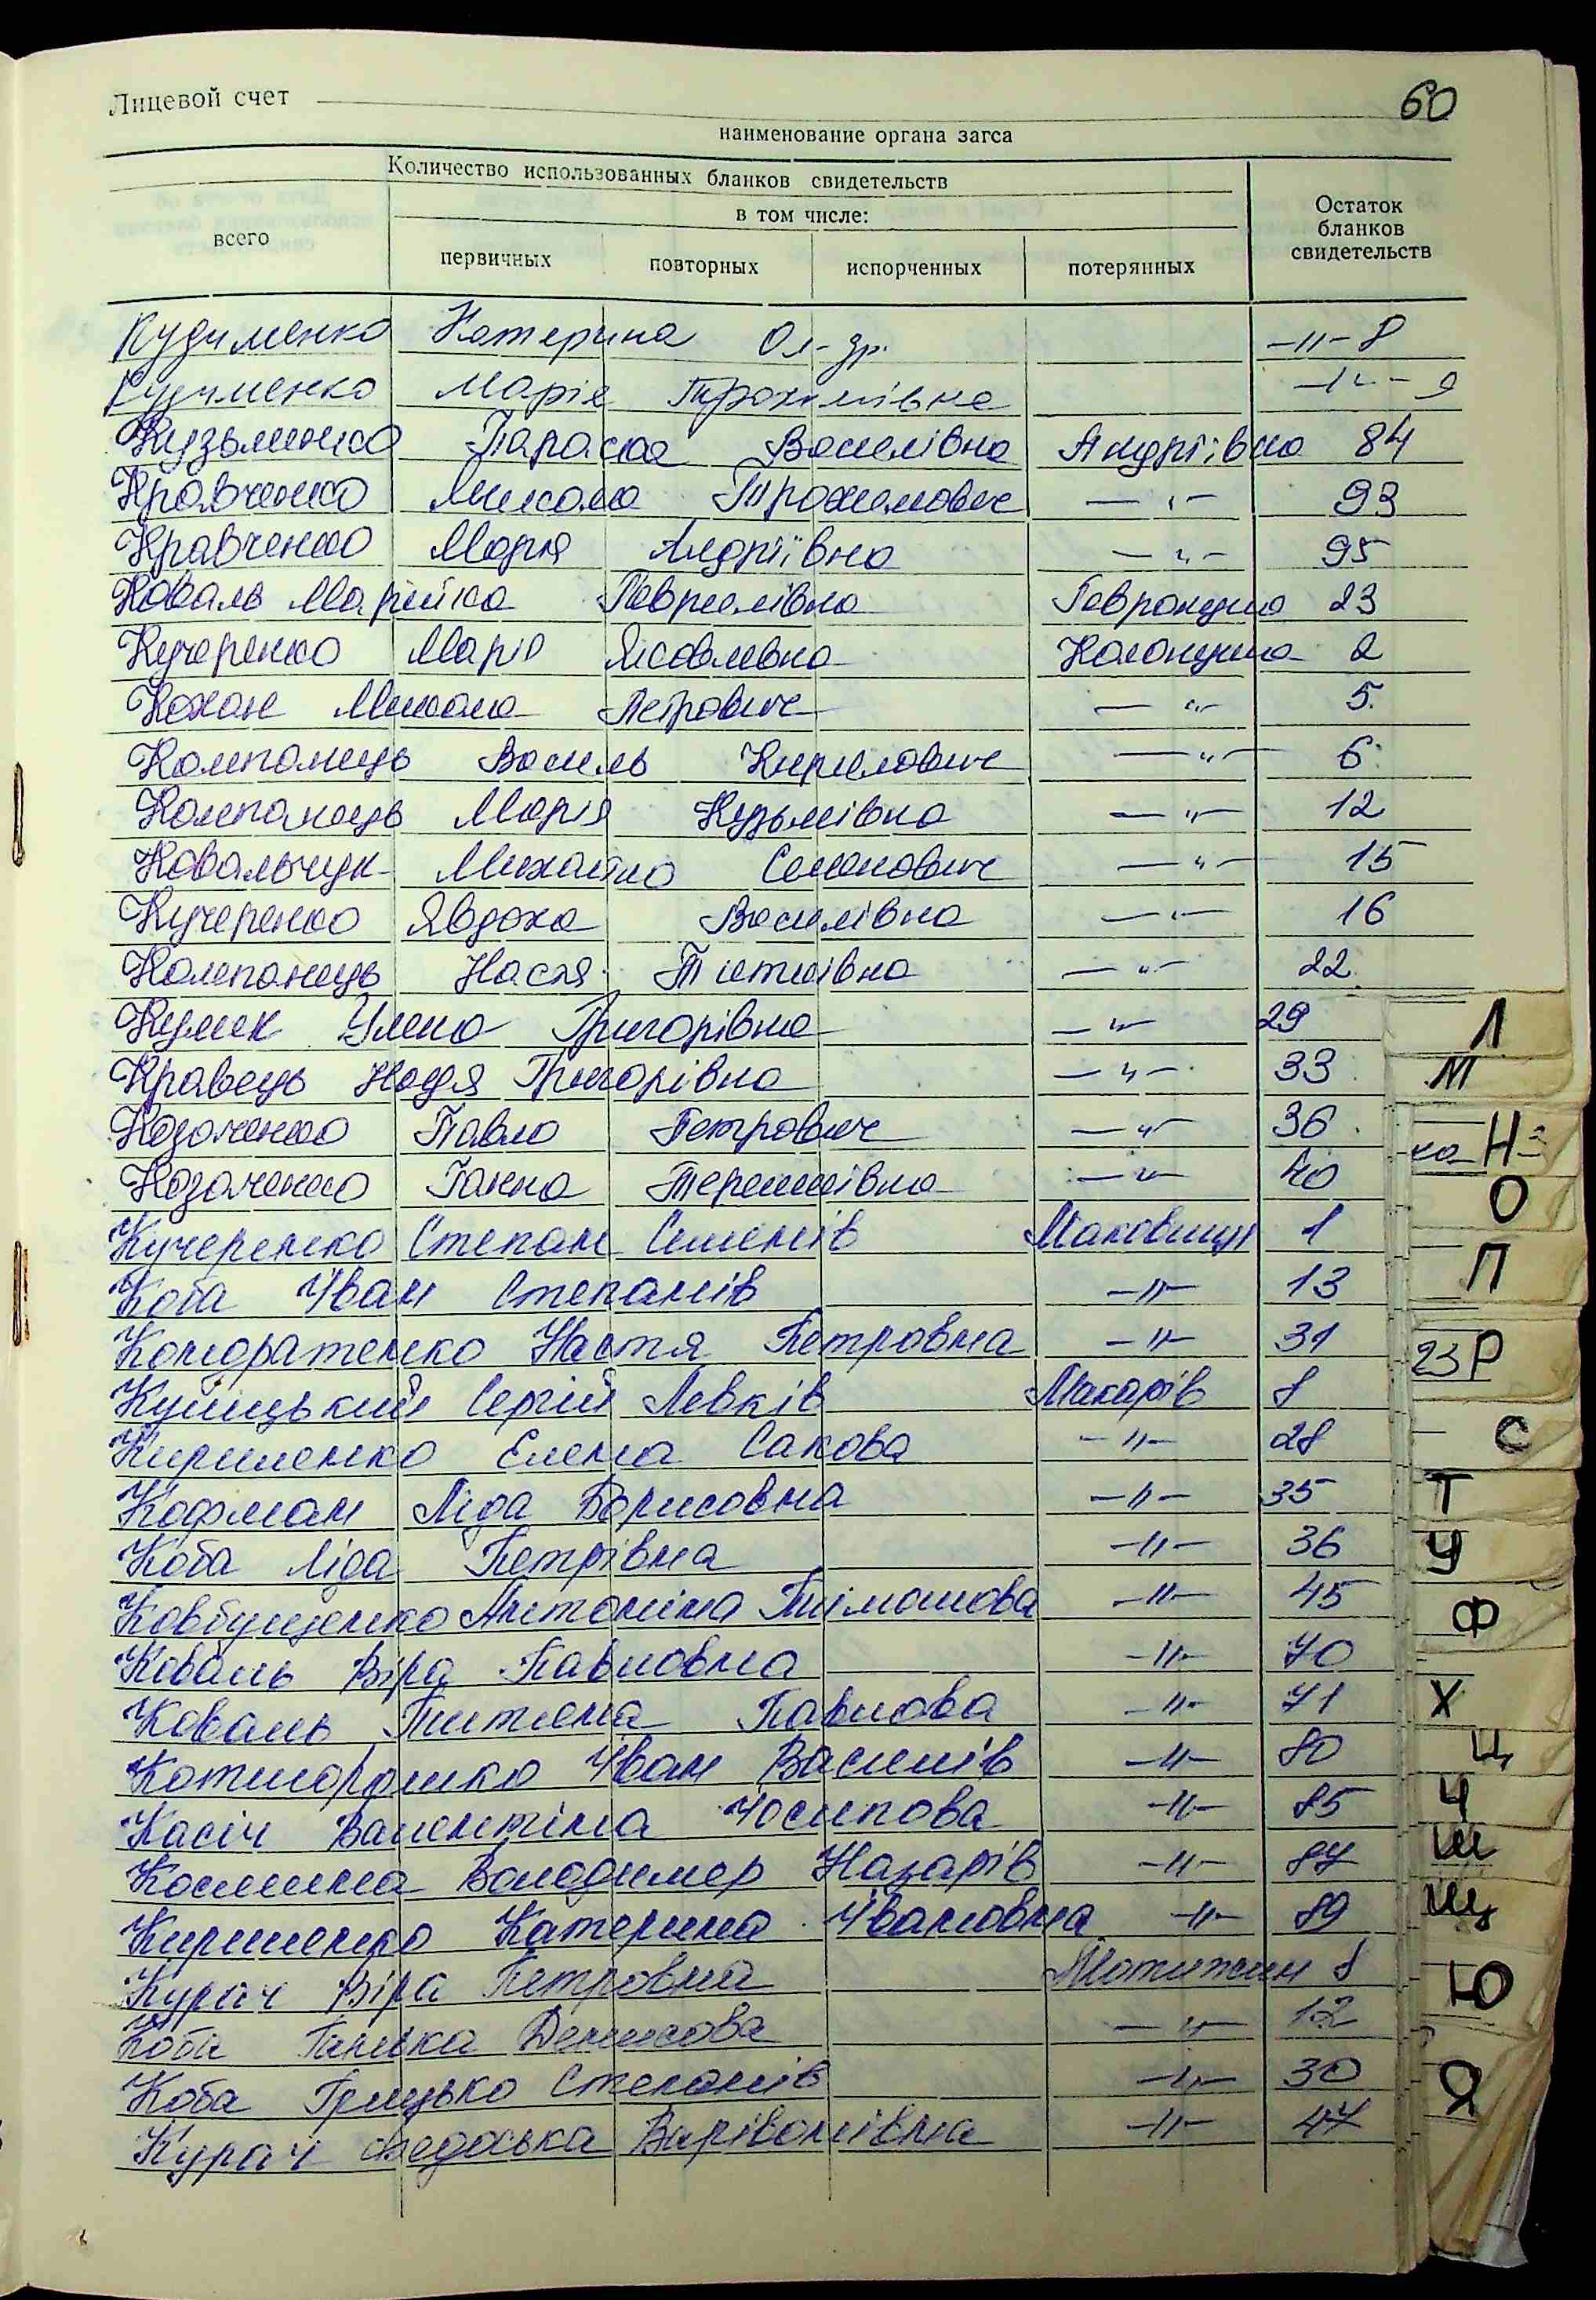 Лицевой счет
60
наименование органа загса
Количество использованных бланков свидетельств
в том числе:
всего
первичных
повторных
испорченных
потерянных
Остаток бланков свидетельств
Кудименко Катерина Ол-др. -"- 8
Марія Трохимівна -"- 9
Кузьменко Параска Василівна Андріївка 84
Кравченко Микола Трохимович -"- 93
Кравченко Марія Андріївна -"- 95
Коваль Марійка Гаврилівна Гавронщина 23
Кучеренко Марія Яковлевна Колонщина 2
Кохан Микола Петрович -"- 5.
Компанець Василь Кирилович -"- 6.
Компанець Марія Кузьмівна -"- 12
Ковальчук Михайло Семенович -"- 15
Кучеренко Явдоха Василівна -"- 16
Компанець Настя Титивна -"- 22.
Кулик Уляна Григорівна -"- 29
Кравець Надя Григорівна -"- 33
Козаченко Павло Петрович -"- 36
Козаченко Ганна Терешківна -"- 40
Кучеренко Степан Семенів Маковище 1
Коба Іван Степанів -"- 13
Кондратенко Настя Петровна -"- 31
Сергій Левків Макарів 8
Кириленко Елена Сакова -"- 28
Кофман Ліда Борисовна -"- 35
Коба Ліда Петрівна -"- 36
Антоніна -"- 45
Коваль Віра Павловна -"- 70
Коваль Титяна Павлова -"- 71
Котигорошко Іван Василів -"- 80
Касіч Валентіна Йосипова -"- 85
Володимер Назарів -"- 87
Кириленко Катерина Івановна -"- 89
Курач Віра Петровна Мотижин 8
Коба Ганька Денисова -"- 12
Коба Грицько Степанів -"- 30
Курач Федоська -"- 47
Л
М
ка Н
О
П
23 Р
С
Т
У
Ф
Х
Ц
Ч
Ш
Щ
Ю
Я